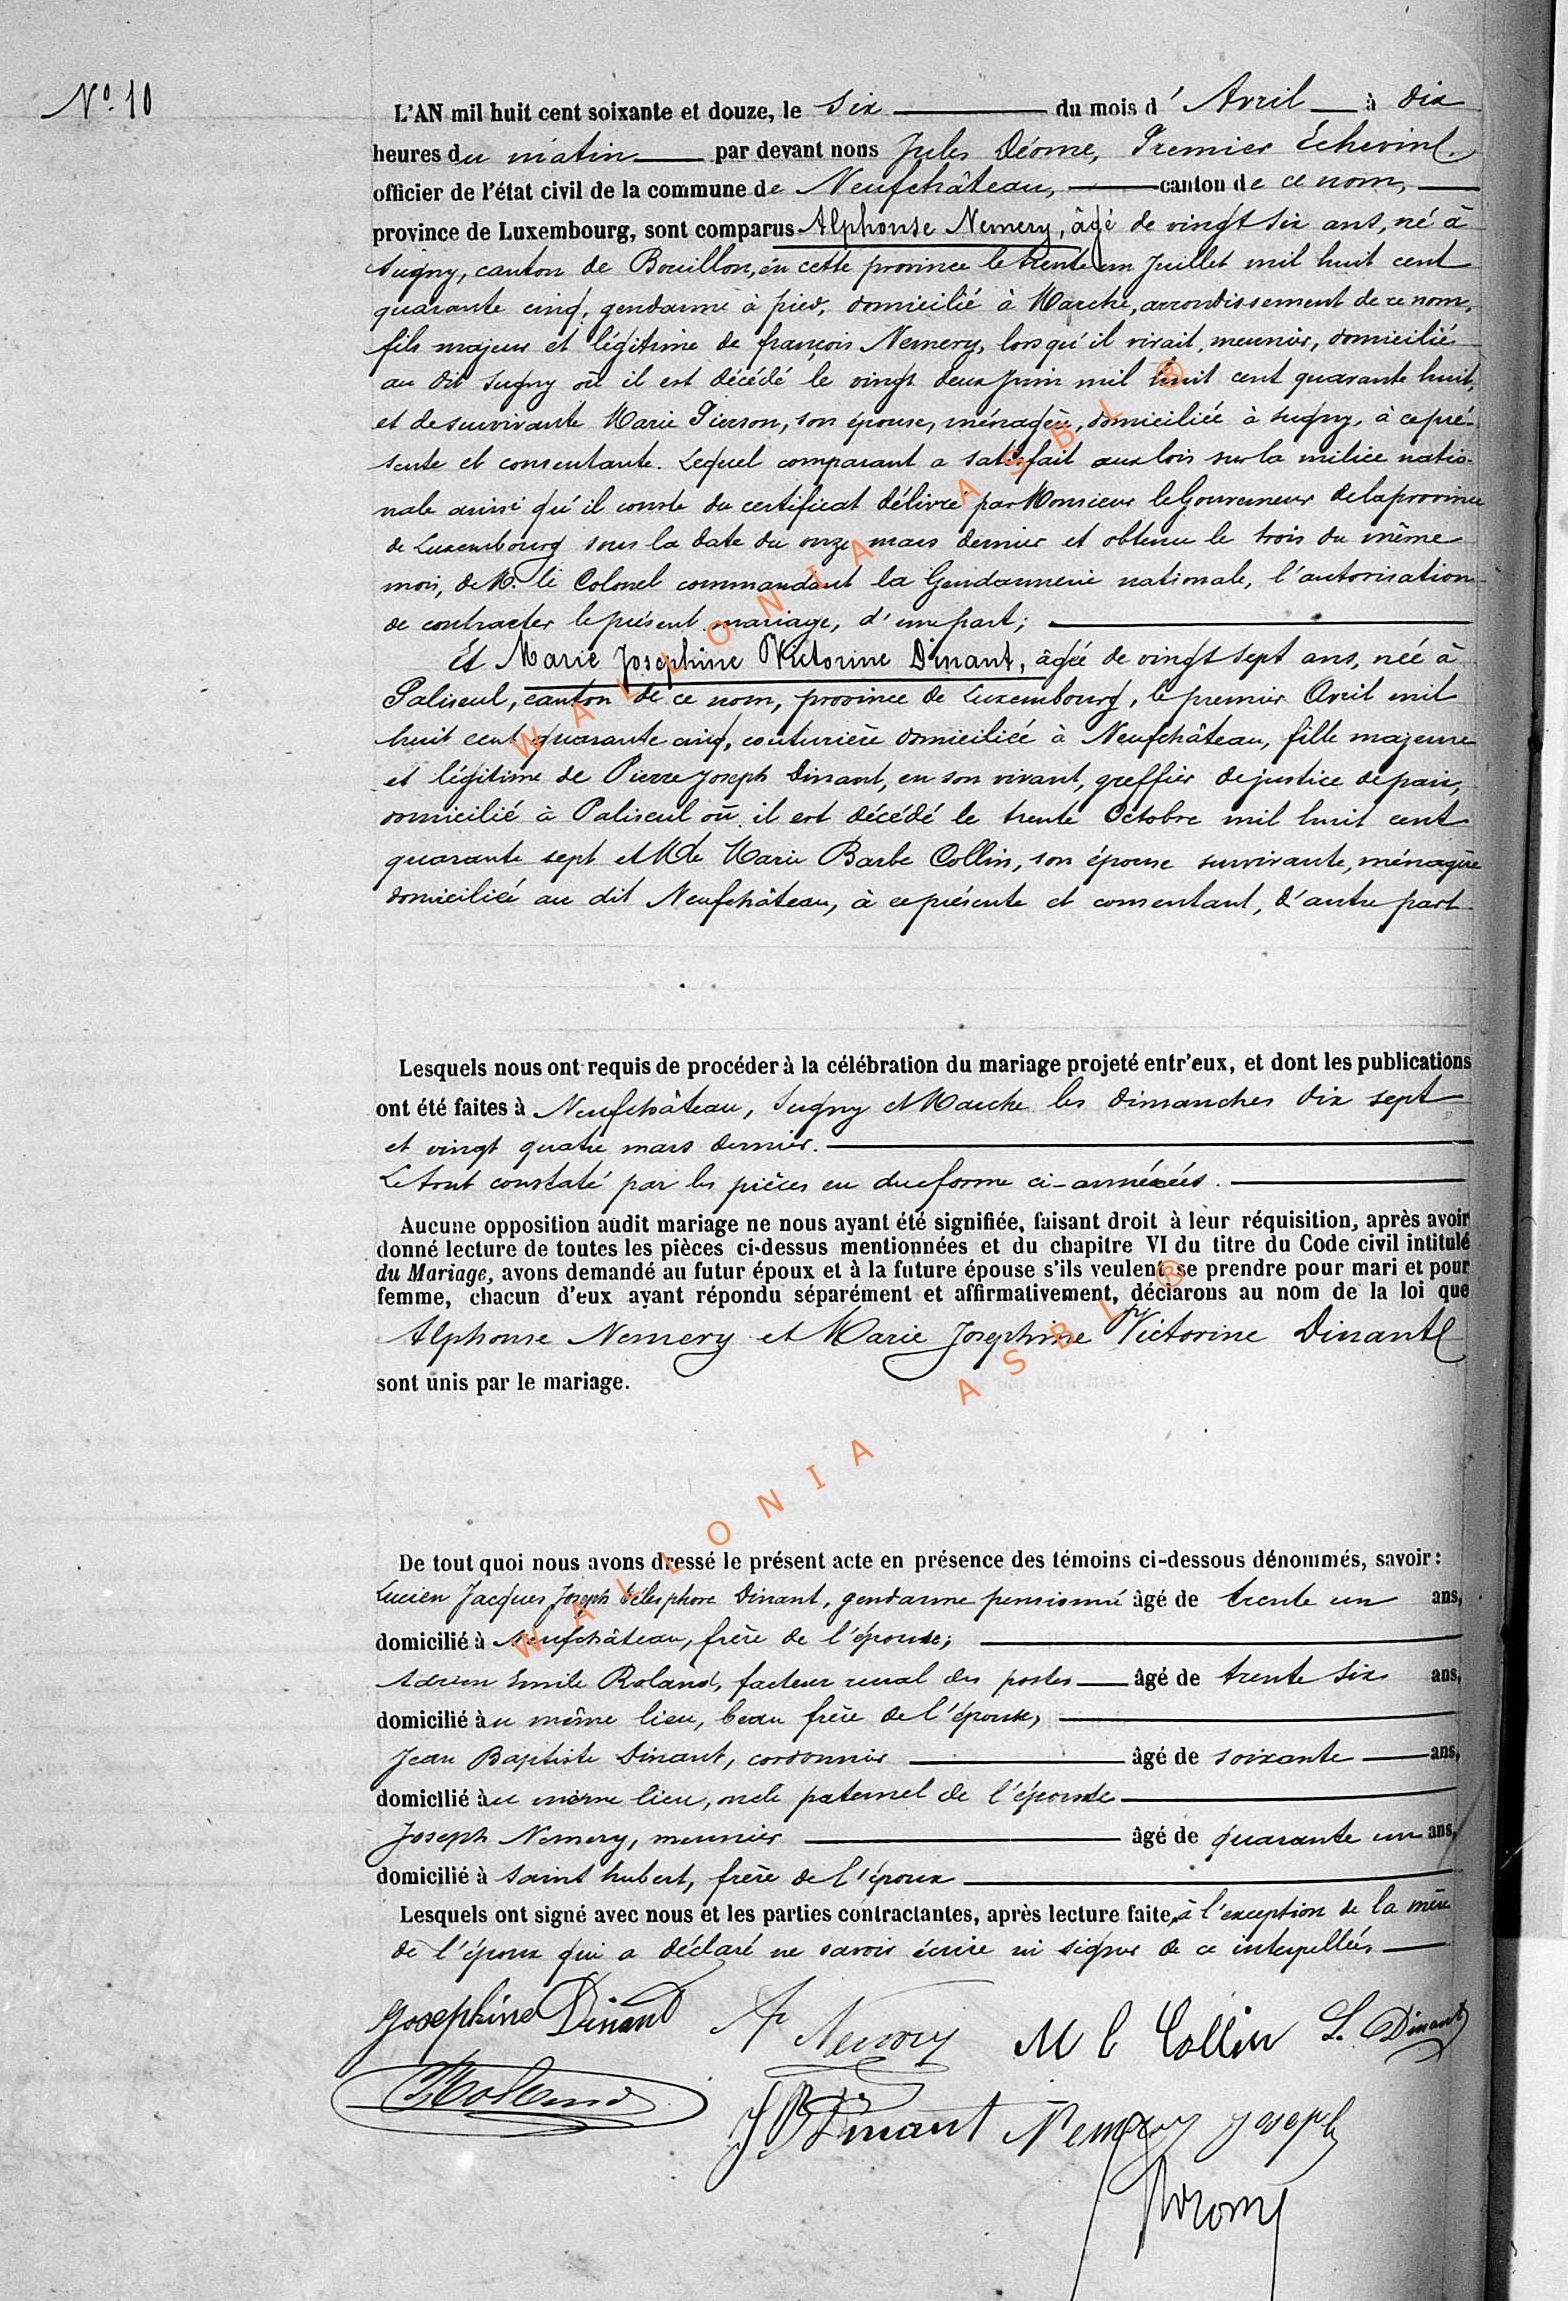 N° 10
L'AN mil huit cent soixante et douze, le six du mois d'Avril à dix
heures du matin par devant nous Jules Déome, Premier Echevin
officier de l'état civil de la commune de Neufchâteau, canton de ce nom,
province de Luxembourg, sont comparus Alphonse Nemery, âgé de vingt six ans, né à
Sugny, canton de Bouillon, en cette province le trente un Juillet mil huit cent
quarante cinq, gendarme à pied, domicilié à Marche, arrondissement de ce nom,
fils majeur et légitime de françois Nemery, lorsqu'il vivait, meunier, domicilié
au dit Sugny où il est décédé le vingt deux Juin mil huit cent quarante huit,
et de survivante Marie Pierson, son épouse, ménagère, domiciliée à Sugny, à ce pré-
sente et consentante. Lequel comparant a satisfait aux lois sur la milice natio-
nale ainsi qu'il conste du certificat délivré par Monsieur le Gouverneur de la province
de Luxembourg sous la date du onze mars dernier et obtenu le trois du même
mois, de M. le Colonel commandant la Gendarmerie nationale, l'autorisation
de contracter le présent mariage, d'une part;
Et Marie Josephine Victorine Dinant, âgée de vingt sept ans, née à
Paliseul, canton de ce nom, province de Luxembourg, le premier Avril mil
huit cent quarante cinq, couturière domiciliée à Neufchâteau, fille majeure
et légitime de Pierre Joseph Dinant, en son vivant, greffier de justice de paix,
domicilié à Paliseul où il est décédé le trente Octobre mil huit cent
quarante sept et de Marie Barbe Collin, son épouse survivante, ménagère
domiciliée au dit Neufchâteau, à ce présente et consentant, d'autre part
Lesquels nous ont requis de procéder à la célébration du mariage projeté entr'eux, et dont les publications
ont été faites à Neufchâteau, Sugny et Marche les dimanches dix sept
et vingt quatre mars dernier.
Le tout constaté par les pièces en due forme ci-annéxées.
Aucune opposition audit mariage ne nous ayant été signifiée, faisant droit à leur réquisition, après avoir
donné lecture de toutes les pièces ci-dessus mentionnées et du chapitre VI du titre du Code civil intitulé
du Mariage, avons demandé au futur époux et à la future épouse s'ils veulent se prendre pour mari et pour
femme, chacun d'eux ayant répondu séparément et affirmativement, déclarons au nom de la loi que
Alphonse Nemery et Marie Josephine Victorine Dinant
sont unis par le mariage.
De tout quoi nous avons dressé le présent acte en présence des témoins ci-dessous dénommés, savoir:
Lucien Jacques Joseph Télesphore Dinant, gendarme pensionné âgé de trente un ans,
domicilié à Neufchâteau, frère de l'épouse;
Adrien Emile Roland, facteur rural des postes âgé de trente six ans,
domicilié au même lieu, beau frère de l'épouse,
Jean Baptiste Dinant, cordonnier âgé de soixante ans,
domicilié au même lieu, oncle paternel de l'épouse
Joseph Nemery, meunier âgé de quarante un ans,
domicilié à Saint hubert, frère de l'époux
Lesquels ont signé avec nous et les parties contractantes, après lecture faite, à l'exception de la mère
de l'époux qui a déclaré ne savoir écrire ni signer de ce interpellée
Josephine Dinant A Nemery M B Collin L. Dinant
JB Dinant Nemery Joseph
WALLONIA ASBL ®
WALLONIA ASBL ®